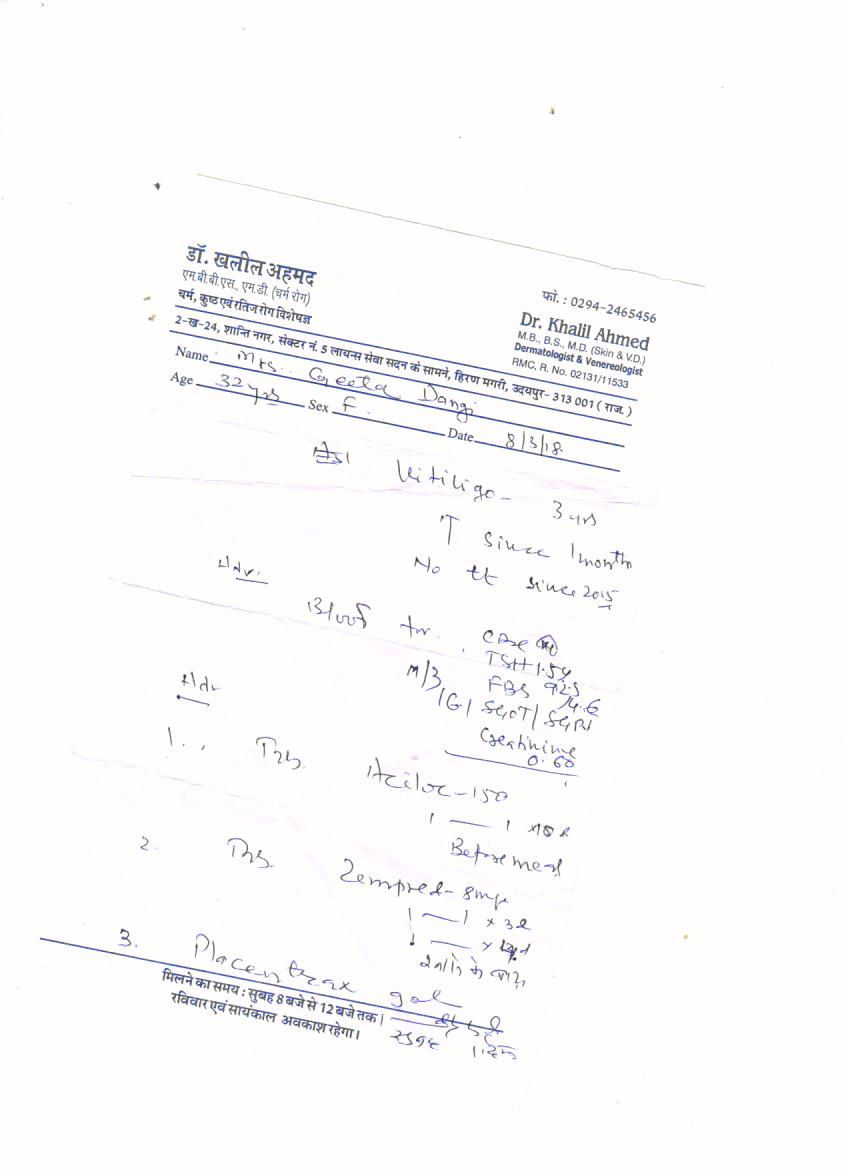 डॉ. खलील अहमद
एम.बी.बी.एस., एम.डी. (चर्म रोग)
चर्म, कुष्ट एवं रतिज रोग विशेषज्ञ
फो. : 0294-2465456
Dr. Khalil Ahmed
M.B., B.S., M.D. (Skin & V.D.)
Dermatologist & Venereologist
RMC, R. No. 02131/11533
2-ख-24, शान्ति नगर, सेक्टर नं. 5 लायन्स सेवा सदन के सामने, हिरण मगरी, उदयपुर- 313 001 ( राज. )
Name Mrs. Geeta Dangi
Age 32 yrs Sex F. Date 8/3/18
Vitiligo - 3 yrs
↑ since 1 month
No tt since 2015
Adv.
Blood for. CBC
TSH 1.54
M/3 FBS 92.5
/G/ SGOT/ SGPT
Creatinine
0.60
Adv
1. Tab. Aciloc-150
1 — 1
Before meal
2. Tab. Zempred-8mg
1 — 1 x 3d
1 —
3. Placentrax gel
मिलने का समय : सुबह 8 बजे से 12 बजे तक।
रविवार एवं सायंकाल अवकाश रहेगा।